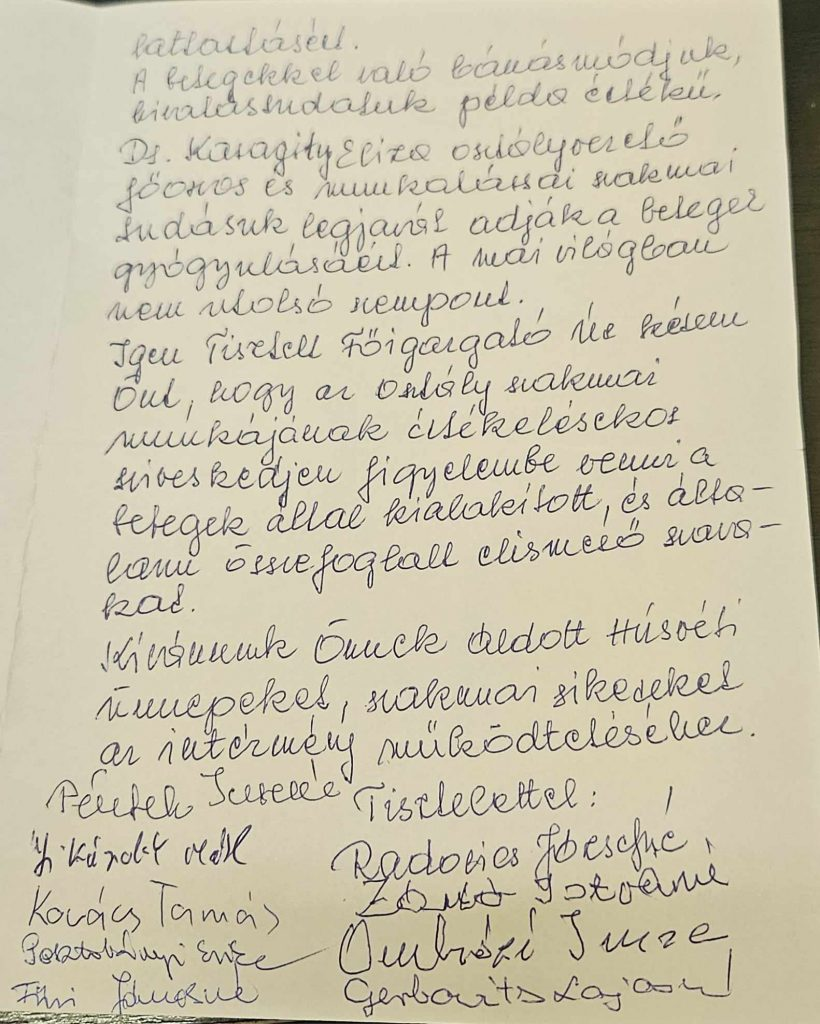 láttatásáért.
A betegekkel való bánásmódjuk,
hivatástudatuk példa értékű.
Dr. Karagity Eliza osztályvezető
főorvos és munkatársai szakmai
tudásuk legjavát adják a betegek
gyógyulásáért. A mai világban
nem utolsó szempont.
Igen Tisztelt Főigazgató Úr kérem
Önt, hogy az osztály szakmai
munkájának értékelésekor
sziveskedjen figyelembe venni a
betegek által kialakított, és álta-
lami összefoglalt elismerő szava-
kat.
Kívánunk Önnek áldott Húsvéti
ünnepeket, szakmai sikereket
az intézmény működtetéséhez.
Péntek Imréné Tisztelettel:
Radovics Józsefné
Kovács Tamás Istvánné
Imre
János Lajosné